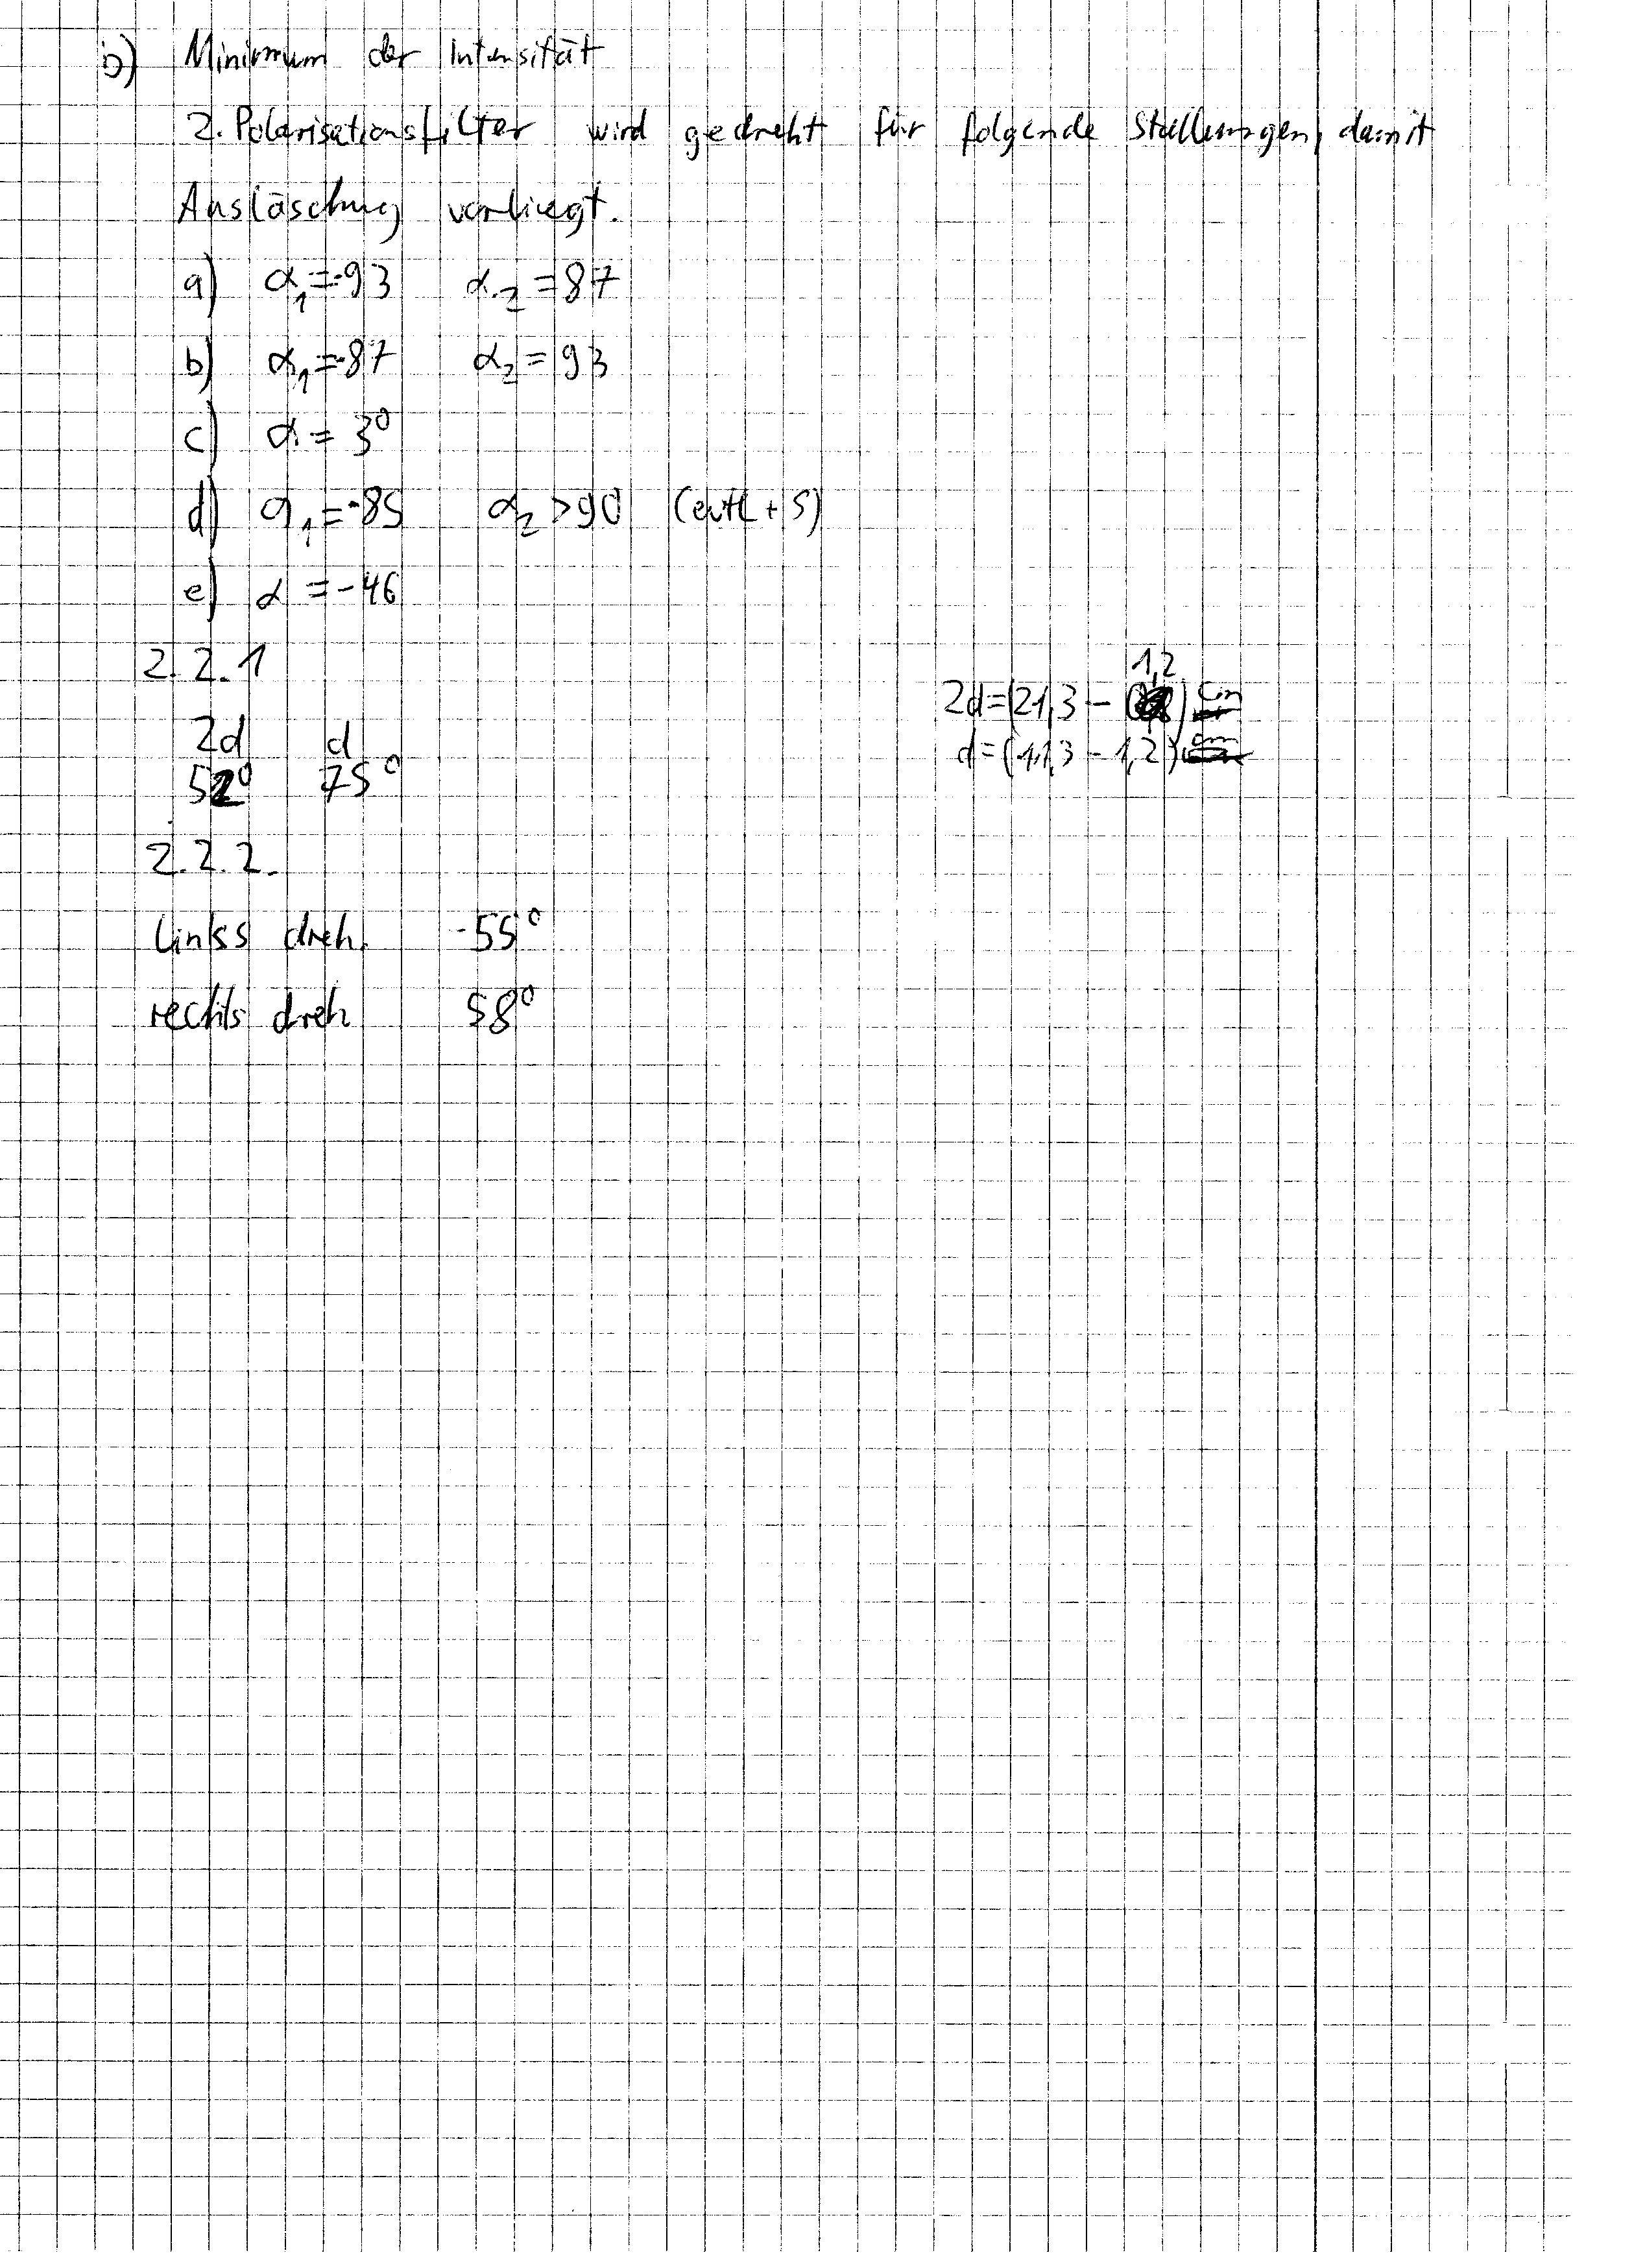 b) Minimum der Intensität
2. Polarisationsfilter wird gedreht für folgende Stellungen, damit
Auslöschung vorliegt.
a) α₁=-93 α₂=87
b) α₁=-87 α₂=93
c) α = 3°
d) α₁=-85 α₂>90 (evtl + 5)
e) α = -46
2.2.1
1,2
2d=(21,3 - ) cm
d=(11,3 - 1,2) cm
2d d
52° 75°
2.2.2.
links dreh. -55°
rechts dreh 58°